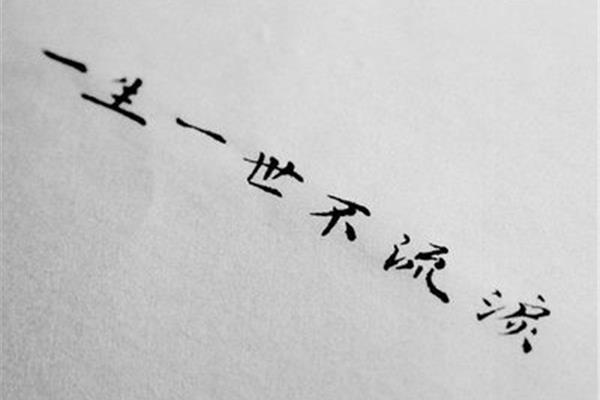 一生一世不流淚